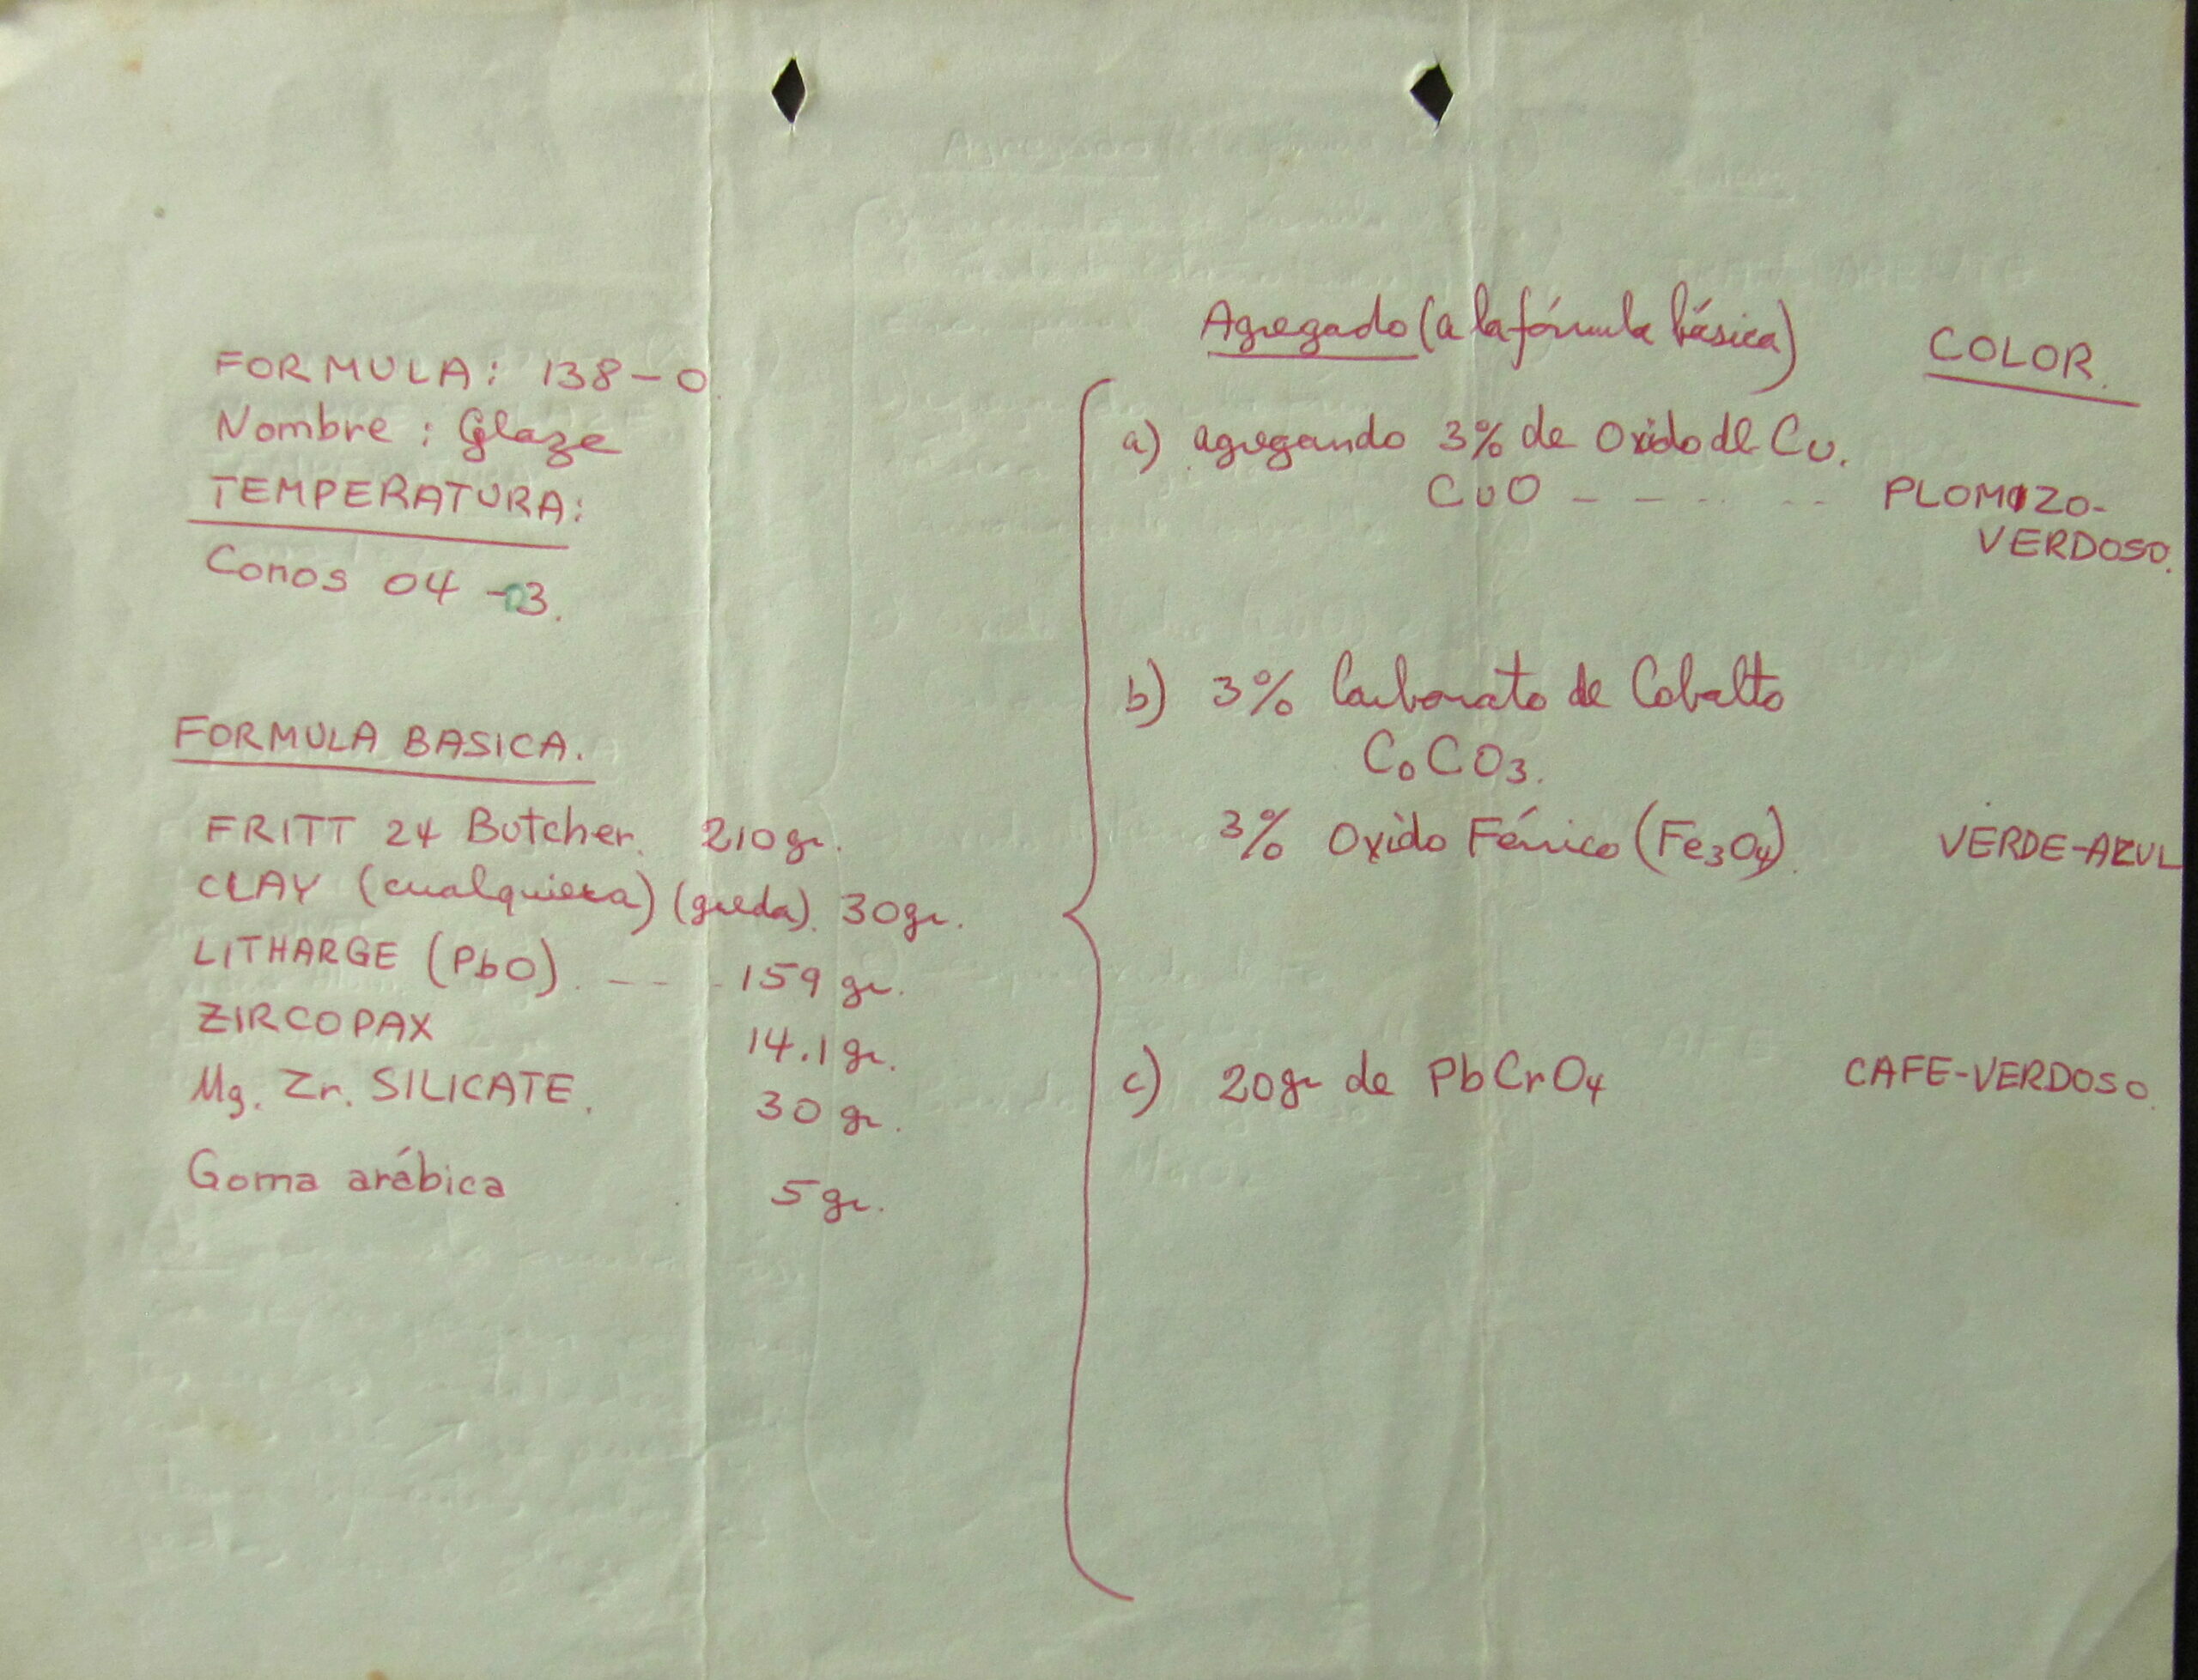 FORMULA: 138-0
Nombre: Glaze
TEMPERATURA:
Conos 04-03.
FORMULA BASICA.
FRITT 24 Butcher. 210gr.
CLAY (cualquiera) (greda). 30gr.
LITHARGE (PbO). --- 159 gr.
ZIRCOPAX 14.1gr.
Mg. Zr. SILICATE. 30gr.
Goma arábica 5gr.
Agregado (a la fórmula básica) COLOR.
a) agregando 3% de Oxido de Cu.
CuO - - - - - PLOMIZO-
VERDOSO.
b) 3% Carbonato de Cobalto
CoCO3.
3% Oxido Férrico (Fe3O4). VERDE-AZUL
c) 20gr de PbCrO4 CAFE-VERDOSO.